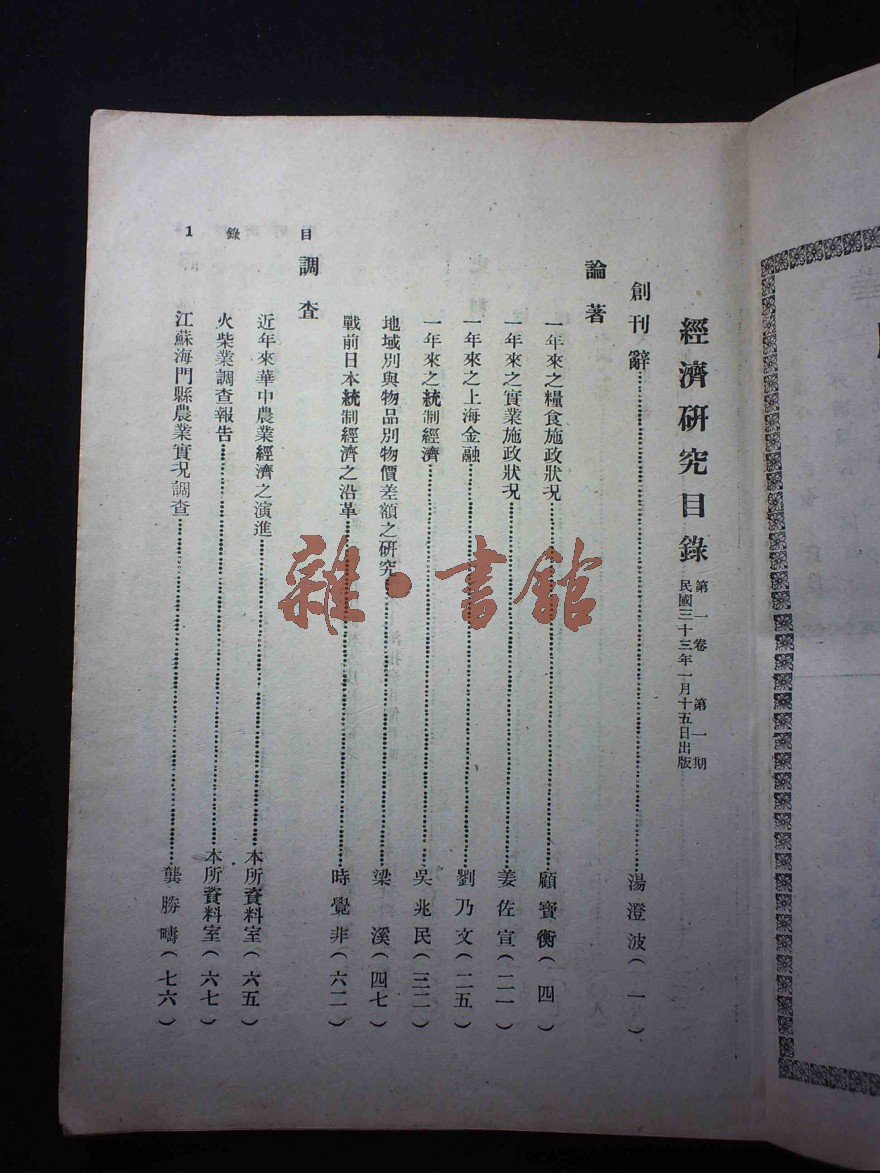 經濟研究目錄
第一卷 第一期
民國三十三年一月十五日出版
創刊辭……湯澄波(一)
論著
一年來之糧食施政狀況……顧寶衡(四)
一年來之實業施政狀況……姜佐宣(二一)
一年來之上海金融……劉乃文(二五)
一年來之統制經濟……吳兆民(三二)
地域別與物品別物價差額之研究……梁溪(四七)
戰前日本統制經濟之沿革……時覺非(六二)
調查
近年來華中農業經濟之演進……本所資料室(六五)
火柴業調查報告……本所資料室(六七)
江蘇海門縣農業實況調查……龔勝疇(七六)
目錄 1
雜·書館